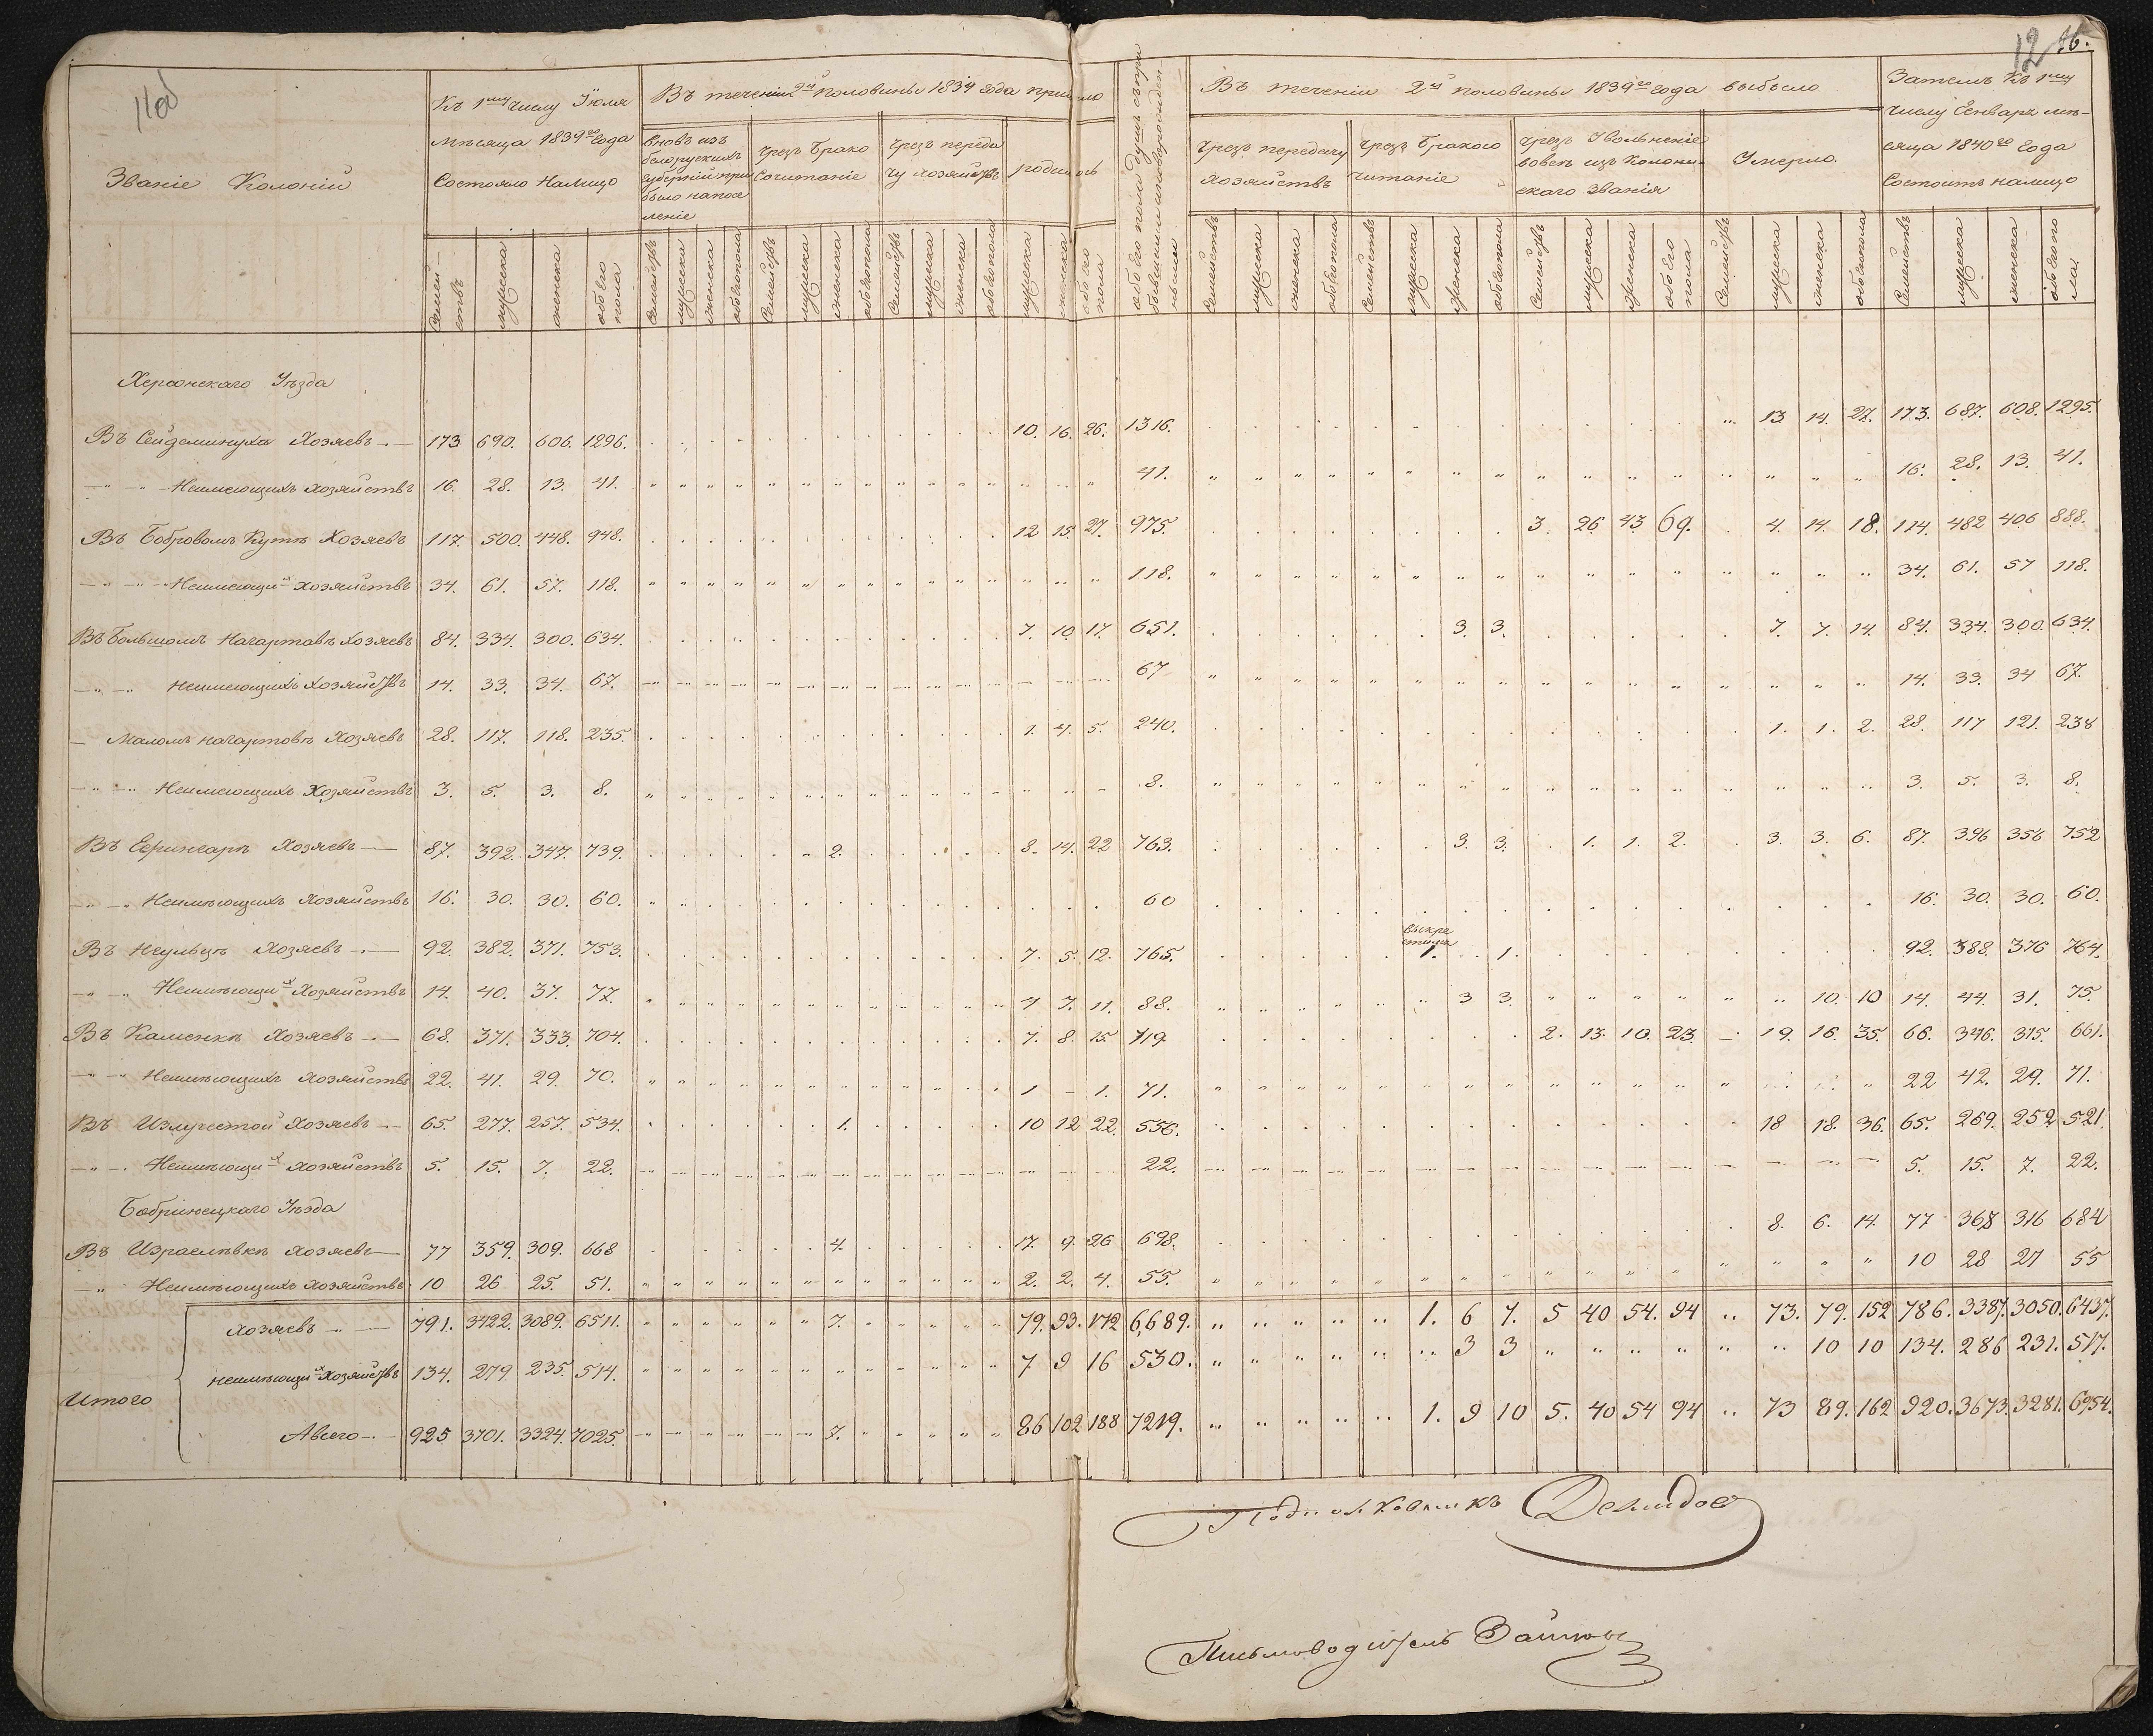 12 16.
Званіе Колоній
Къ 1му числу Іюля
мѣсяца 1839го года
Состояло Налицо
Въ теченіи 2й половины 1839 года прибыло
вновь изъ
белорускихъ
губерній при
было напосе
леніе
чрезъ Брако
Сочитаніе
чрезъ переда
чу хозяйствъ
родилось
обоего пола душъ съ при
бывшими и новорожден-
ными
Въ теченіи 2й половины 1839го года выбыло
чрезъ передачу
хозяйствъ
чрезъ Бракосо
читаніе
чрезъ Увольненіе
вовсе изъ Колони-
скаго званія
Умерло.
Затемъ Къ 1му
числу Генваря мѣ-
сяца 1840го года
Состоитъ налицо
Семей-ствъ мужеска женска обоего пола Семействъ мужеска женска обоегопола Семействъ мужеска женска обоегопола Семействъ мужеска женска обоегопола мужеска женска обоего пола
Семействъ мужеска женска обоегопола Семействъ мужеска Женска обоегопола Семействъ мужеска Женска обоего пола Семействъ мужеска женска обоегопола Семействъ мужеска женска обоего пола.
Херсонскаго Уѣзда
Въ Сейдеминуха Хозяевъ 173 690. 606. 1296. 10. 16. 26. 1316. 13 14. 27. 173. 687. 608. 1295.
Неимеющихъ хозяйствъ 16. 28. 13. 41. 41. 16. 28. 13. 41.
Въ Бобровомъ Кутѣ Хозяевъ 117. 500. 448. 948. 12 15. 27. 975. 3. 26 43 69. 4. 14. 18. 114. 482 406 888.
Неимеющихъ хозяйствъ 34. 61. 57. 118. 118. 34. 61. 57 118.
Въ Большомъ Нагартавѣ Хозяевъ 84. 334. 300. 634. 7. 10 17. 651. 3. 3. 7. 7. 14. 84. 334. 300. 634.
неимеющихъ хозяйствъ 14. 33. 34. 67. 67 14. 33. 34 67.
Маломъ нагартовѣ Хозяевъ 28. 117. 118. 235. 1. 4. 5. 240. 1. 1. 2. 28. 117 121. 238
Неимеющихъ Хозяйствъ 3. 5. 3. 8. 8. 3. 5. 3. 8.
Въ Ефингарѣ Хозяевъ 87. 392. 347. 739. 2. 8. 14. 22 763. 3. 3. 1. 1. 2. 3. 3. 6. 87. 396 356 752
Неимѣющихъ Хозяйствъ 16. 30. 30. 60. 60 16. 30. 30. 60.
Въ Неульцѣ Хозяевъ 92. 382. 371. 753. 7. 5. 12. 765. выкре стился 1. 1. 92. 388. 376 764.
Неимѣющихъ Хозяйствъ 14. 40. 37. 77. 4 7. 11. 88. 3 3. 10. 10 14. 44. 31. 75.
Въ Каменкѣ Хозяевъ 68. 371. 333. 704. 7. 8. 15. 719. 2. 13. 10. 23. 19. 16. 35. 66. 346. 315. 661.
Неимѣющихъ Хозяйствъ 22. 41. 29. 70. 1 1. 71. 22 42. 29. 71.
Въ Излучестой Хозяевъ 65. 277. 257. 534. 1. 10 12 22. 556. 18 18. 36. 65. 269. 252 521.
Неимѣющихъ хозяйствъ 5. 15. 7. 22. 22. 5. 15. 7. 22.
Бобринецкаго Уѣзда
Въ Израелѣвкѣ Хозяевъ 77 359. 309. 668 4. 17. 9. 26 698. 8. 6. 14. 77 368 316 684
Неимѣющихъ Хозяйствъ 10 26 25. 51. 2. 2. 4. 55. 10 28 27 55
Хозяевъ 791. 3422. 3089. 6511. 7. 79. 93. 172 6,689. 1. 6 7. 5 40 54. 94 73. 79. 152 786. 3387. 3050. 6437.
неимѣющихъ Хозяйствъ 134. 279. 235. 514. 7 9 16 530. 3 3 10 10 134. 286 231. 517.
Итого
А всего 925 3701. 3324. 7025. 7. 86 102 188 7219. 1. 9 10 5. 40 54 94 73 89. 162 920. 3673. 3281. 6954.
Подполковникъ Демидов
Письмоводитель